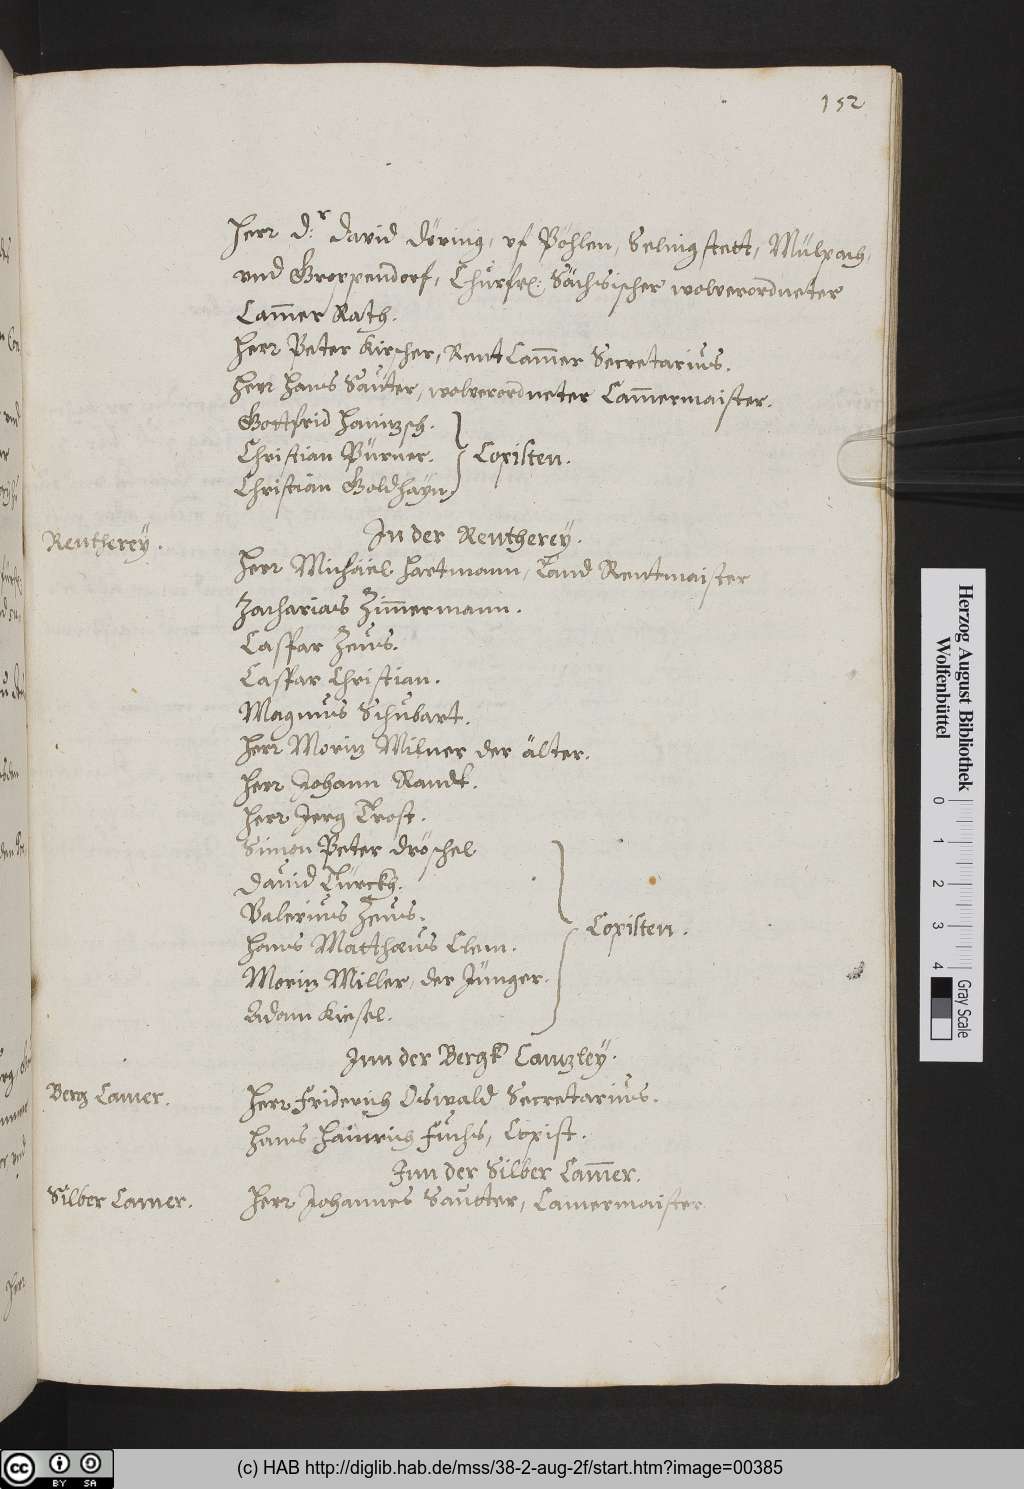 152
Herr D:r David Döring, vf Böhlen, Selingstett, Mülpach,
vnd Grorpendorf, Churfr: Sächsischer wolverordneter
Cam̄er Rath.
Herr Peter Kircher, Rent Cam̄er Secretarius.
Herr Hans Sauter, wolverordneter Cam̄ermaister.
Gottfrid Hainzsch.
Christian Pürner. Copisten.
Christian Goldhayn
Rentherey. In der Rentherey.
Herr Michäel Hartmann, Land Rentmaister
Zacharias Zim̄ermann.
Caspar Zeus.
Caspar Christian.
Magnus Schubart.
Herr Moritz Milner der älter.
Herr Johann Kandt.
Herr Jerg Trost.
Simon Peter Dröschel
David Türcky.
Valerius Zeus. Copisten.
Hans Matthæus Clem.
Moritz Miller, der Jünger.
Adam Kiesel.
Inn der Bergk Cantzley.
Berg Camer. Herr Friderich Oswald Secretarius.
Hans Hainrich Fuchs, Copist.
Inn der Silber Cam̄er.
Silber Camer. Herr Johannes Sautter, Camermaister
Herzog August Bibliothek
Wolfenbüttel
0 1 2 3 4
Gray Scale
cc BY SA
(c) HAB http://diglib.hab.de/mss/38-2-aug-2f/start.htm?image=00385